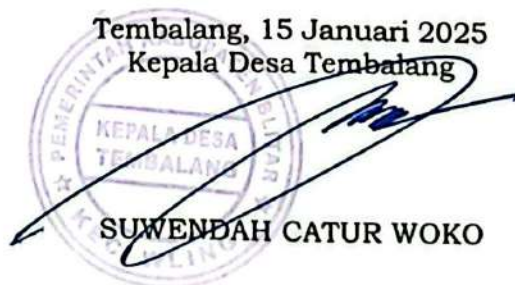 Tembalang, 15 Januari 2025
Kepala Desa Tembalang
PEMERINTAH KABUPATEN BLITAR
KEPALA DESA
TEMBALANG
KEC. WLINGI
SUWENDAH CATUR WOKO